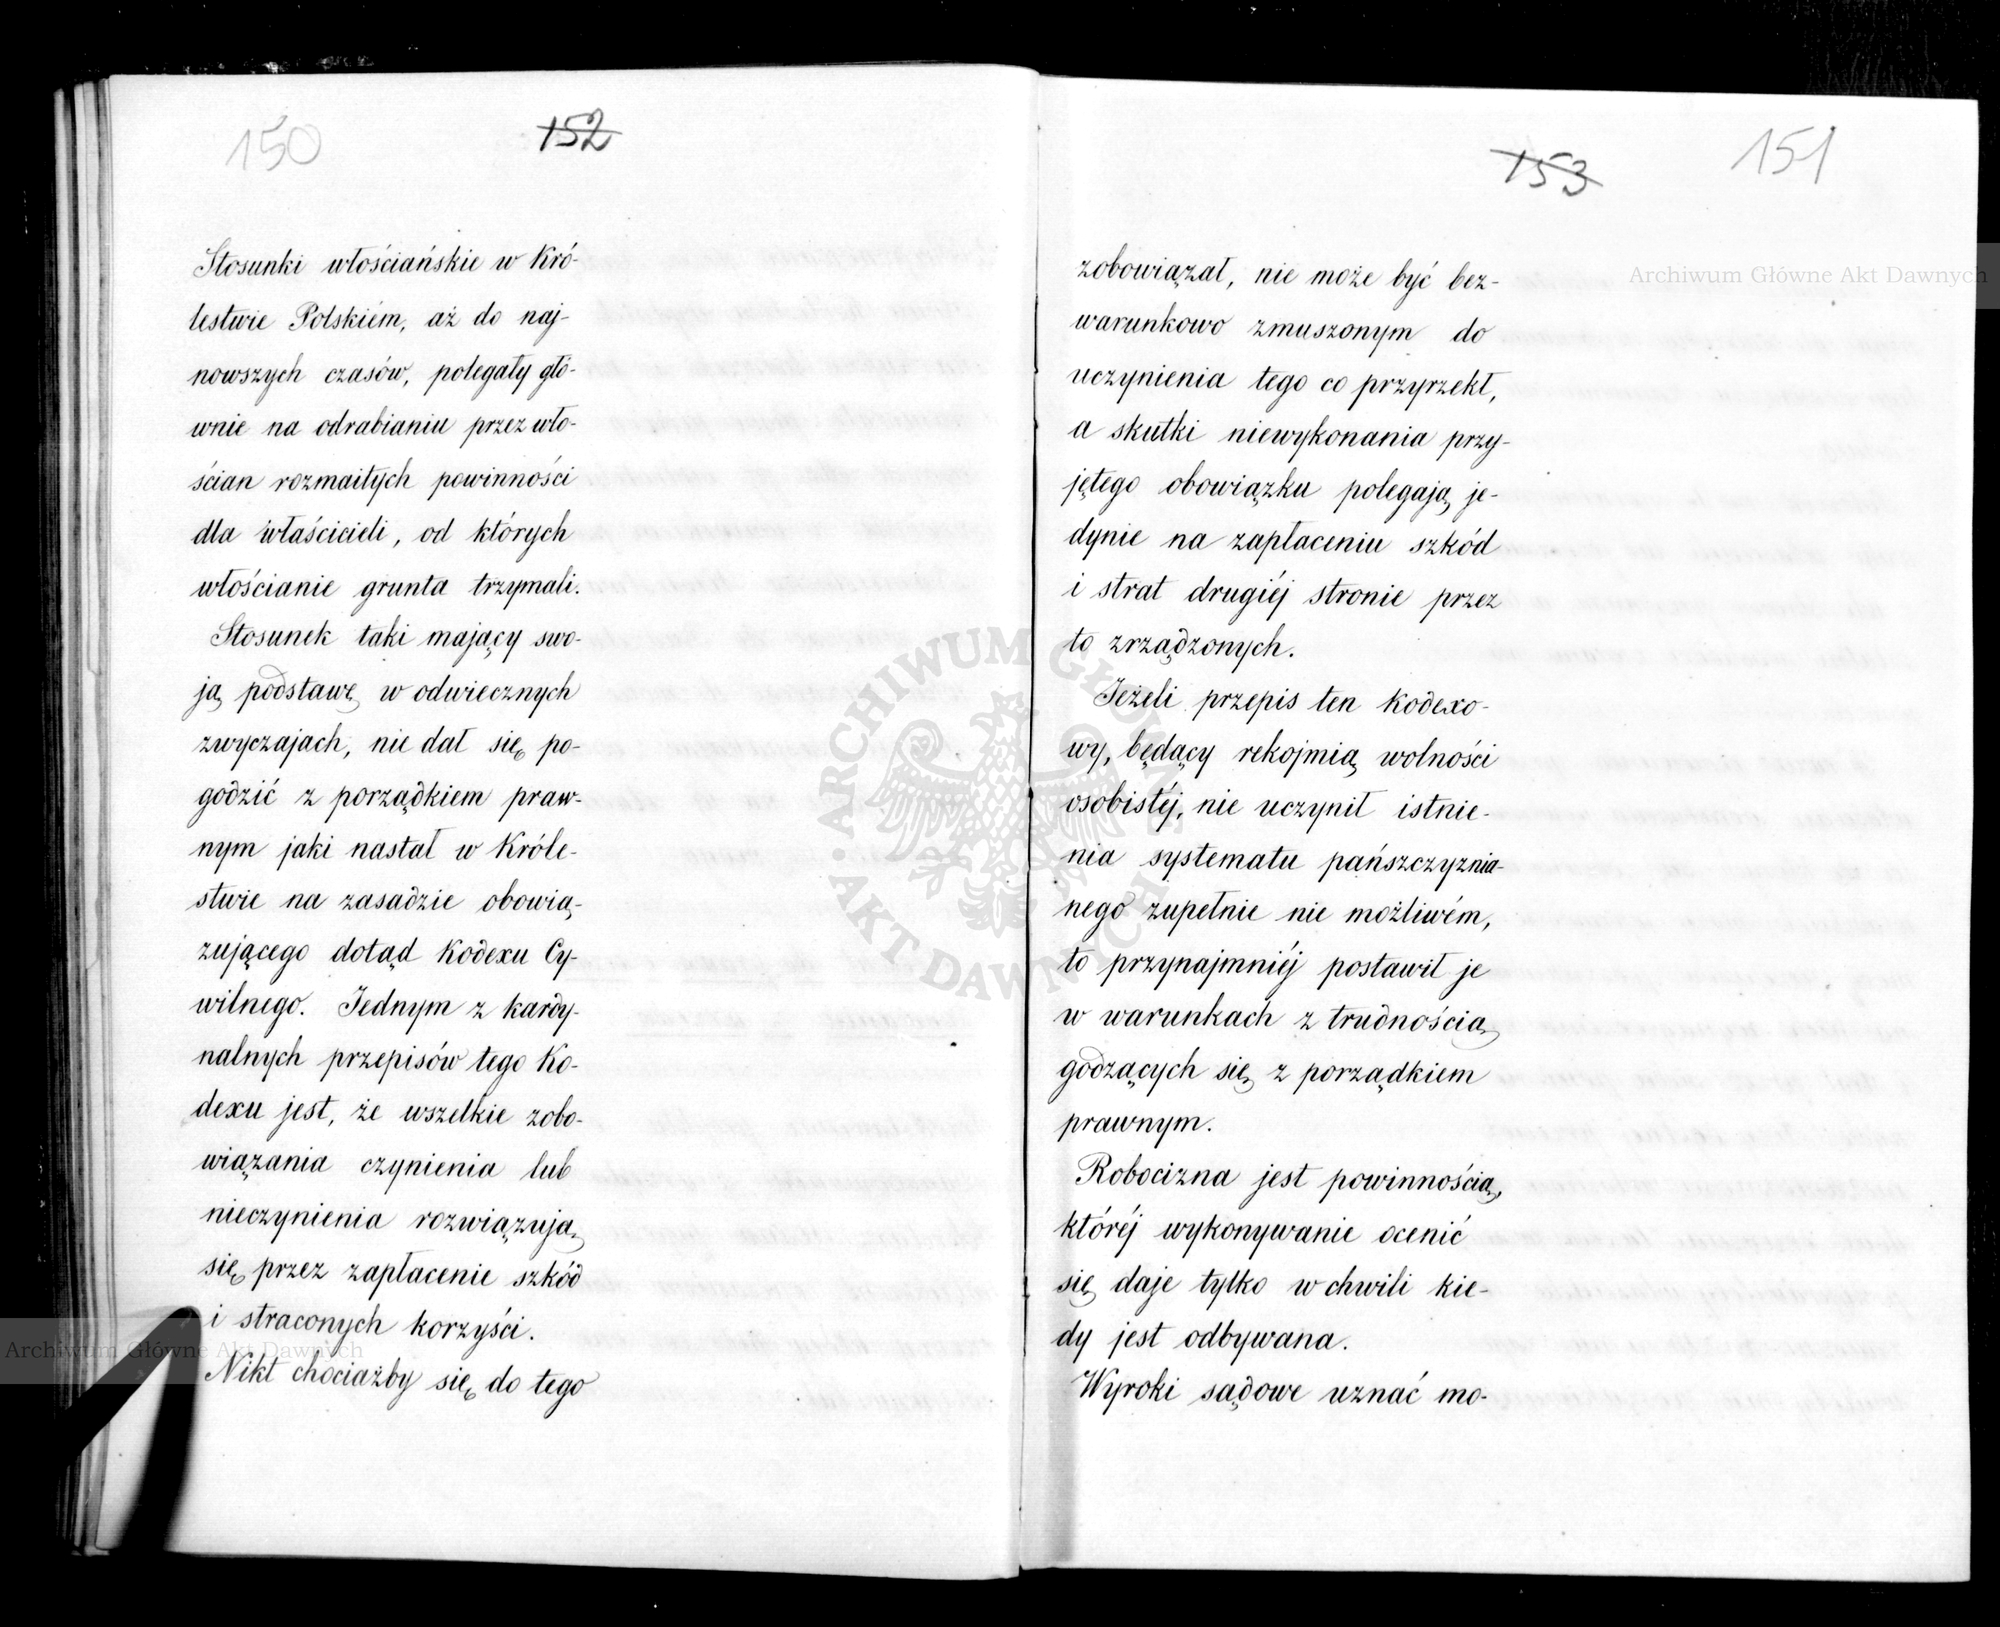 150
152
Stosunki włościańskie w Kró-
lestwie Polskiém, aż do naj-
nowszych czasów, polegały głó-
wnie na odrabianiu przez wło-
ścian rozmaitych powinności
dla właścicieli, od których
włościanie grunta trzymali.
Stosunek taki mający swo-
ją podstawę w odwiecznych
zwyczajach, nie dał się po-
godzić z porządkiem praw-
nym jaki nastał w Króle-
stwie na zasadzie obowią-
zującego dotąd Kodexu Cy-
wilnego. Jednym z kardy-
nalnych przepisów tego Ko-
dexu jest, że wszelkie zobo-
wiązania czynienia lub
nieczynienia rozwiązują
się przez zapłacenie szkód
i straconych korzyści.
Nikt chociażby się do tego
153
151
zobowiązał, nie może być bez-
warunkowo zmuszonym do
uczynienia tego co przyrzekł,
a skutki niewykonania przy-
jętego obowiązku polegają je-
dynie na zapłaceniu szkód
i strat drugiéj stronie przez
to zrządzonych.
Jeżeli przepis ten Kodexo-
wy, będący rekojmią wolności
osobistéj, nie uczynił istnie-
nia systematu pańszczyznia-
nego zupełnie nie możliwém,
to przynajmniéj postawił je
w warunkach z trudnością
godzących się z porządkiem
prawnym.
Robocizna jest powinnością,
któréj wykonywanie ocenić
się daje tylko w chwili kie-
dy jest odbywana.
Wyroki sądowe uznać mo-
Archiwum Główne Akt Dawnych
Archiwum Główne Akt Dawnych
ARCHIWUM GŁÓWNE · AKT DAWNYCH ·